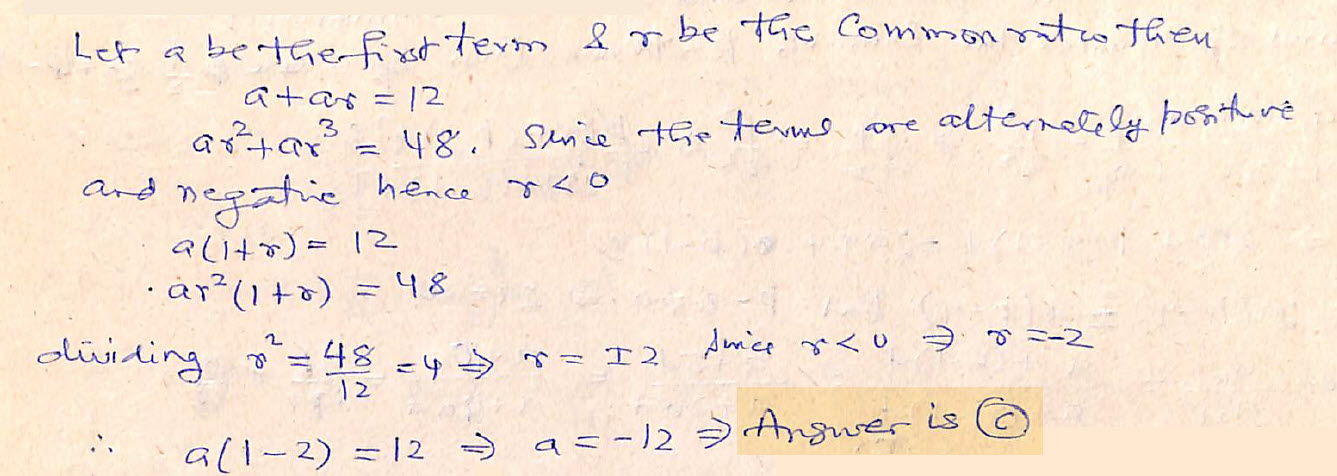 Let a be the first term & r be the Common ratio then
a+ar = 12
ar²+ar³ = 48. Since the terms are alternately positive
and negative hence r<0
a(1+r) = 12
ar²(1+r) = 48
dividing r² = 48/12 = 4 ⇒ r = ±2 since r<0 ⇒ r = -2
∴ a(1-2) = 12 ⇒ a = -12 ⇒ Answer is ⓒ